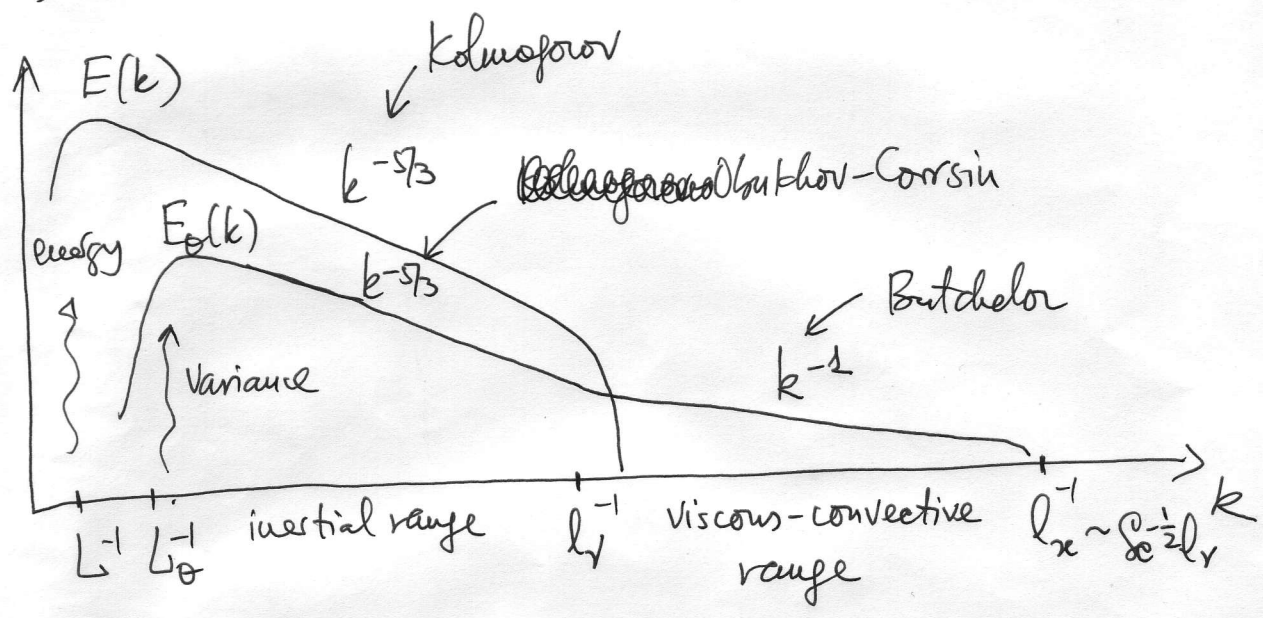 Kolmogorov
E(k)
k^{-5/3}
Obukhov-Corrsin
energy
E_θ(k)
k^{-5/3}
Batchelor
Variance
k^{-1}
L^{-1} L_θ^{-1} inertial range l_ν^{-1} viscous-convective l_κ^{-1} ~ Sc^{-1/2} l_ν k
range